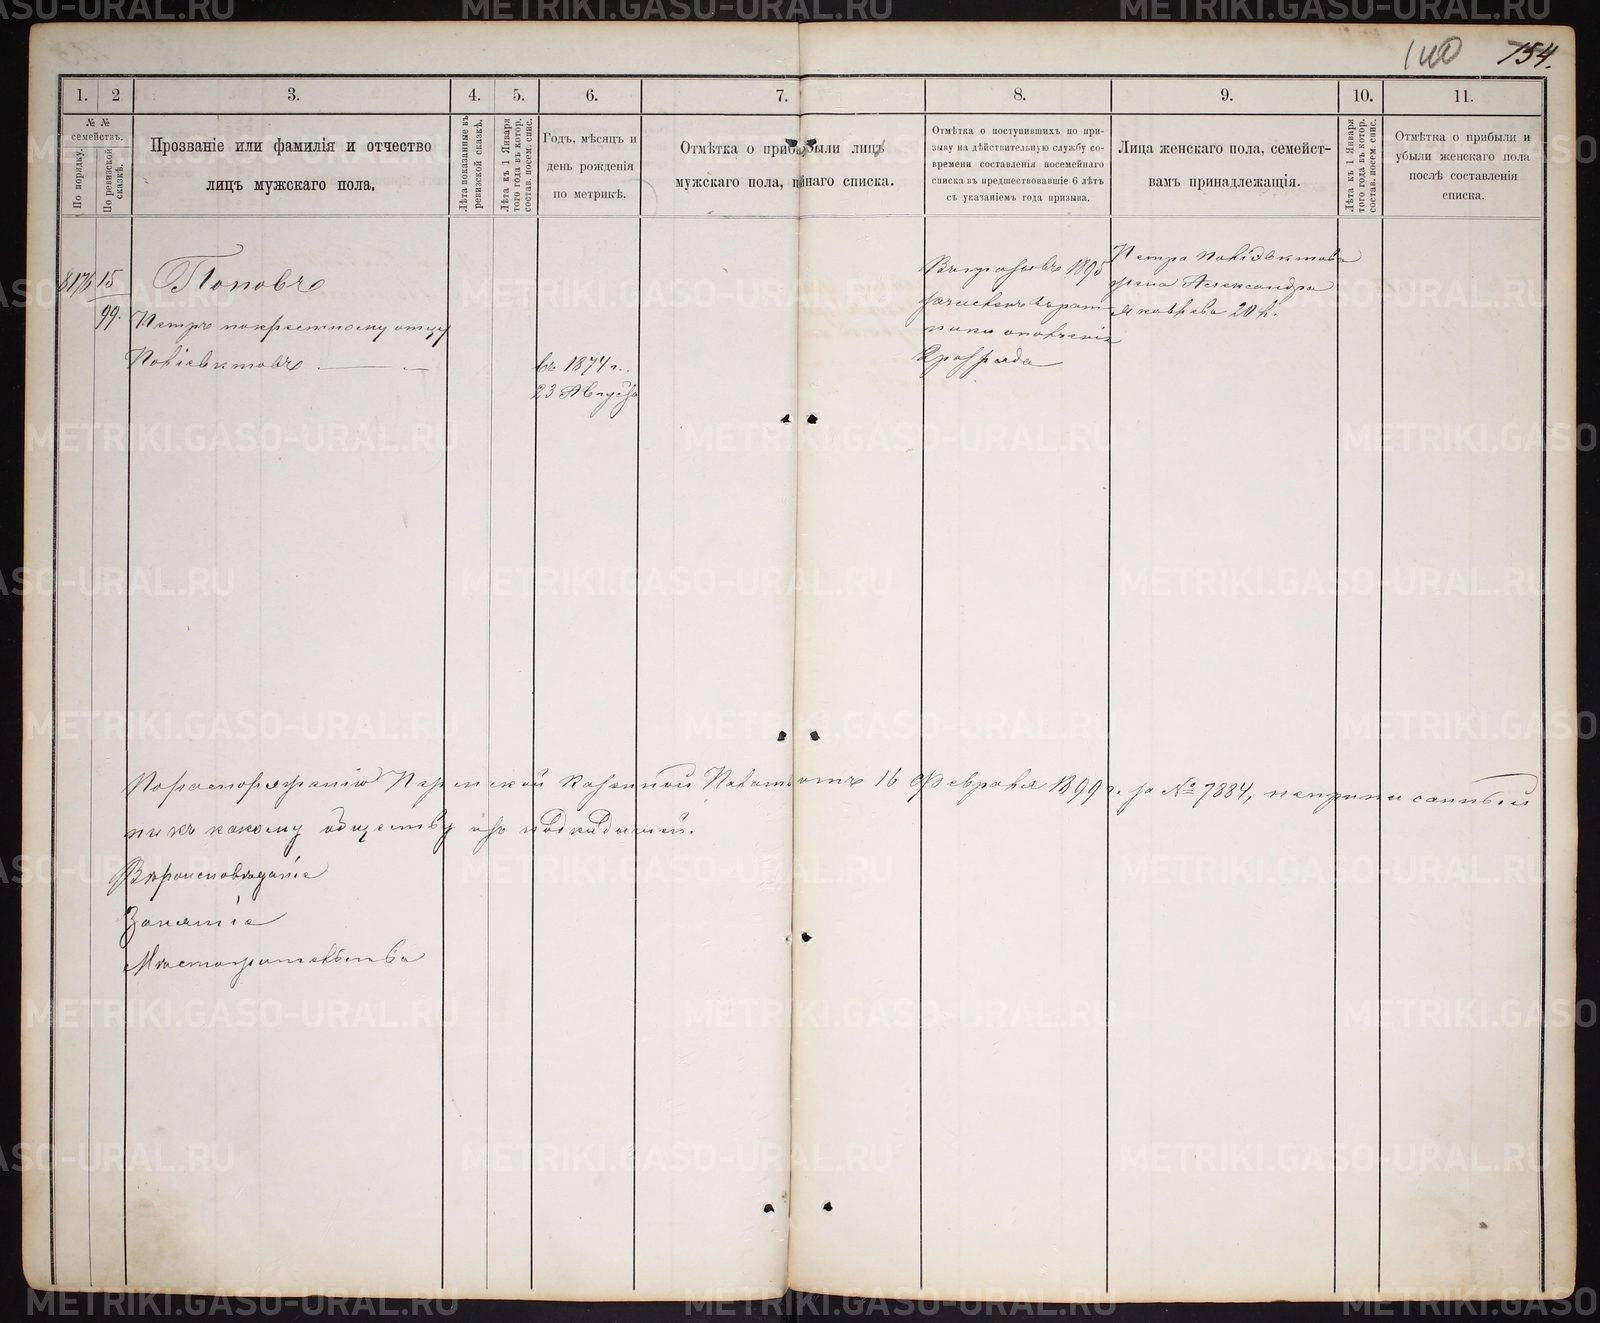 140 154.
1. 2 3. 4. 5. 6. 7. 8. 9. 10. 11.
№ № семействъ.
По порядку.
По ревизской сказкѣ.
Прозваніе или фамилія и отчество
лицъ мужскаго пола.
Лѣта показанные въ
ревизской сказкѣ.
Лѣта къ 1 Января
того года въ котор.
состав. посем. спис.
Годъ, мѣсяцъ и
день рожденія
по метрикѣ.
Отмѣтка о приб были лицъ
мужскаго пола, п наго списка.
Отмѣтка о поступившихъ по при-
зыву на дѣйствительную службу со-
времени составленія посемейнаго
списка въ предшествовавшіе 6 лѣтъ
съ указаніемъ года призыва.
Лица женскаго пола, семейст-
вамъ принадлежащія.
Лѣта къ 1 Января
того года въ котор.
состав. посем. спис.
Отмѣтка о прибыли и
убыли женскаго пола
послѣ составленія
списка.
8176 15
99.
Поповъ
Петръ по крестному отцу
Поліевктовъ
въ 1874 г.
23 Августа
Въ призывъ 1895
зачисленъ въ рат-
ники ополченія
2 разряда
Петра Поліевктова
жена Александра
Яковлева 20 л.
По распоряженію Пермской Казенной Палаты отъ 16 Февраля 1899 г. за № 7884, неприписанный
ни къ какому обществу изъ подкидышей.
Вѣроисповѣданіе
Занятіе
Мѣстожительство
METRIKI.GASO-URAL.RU